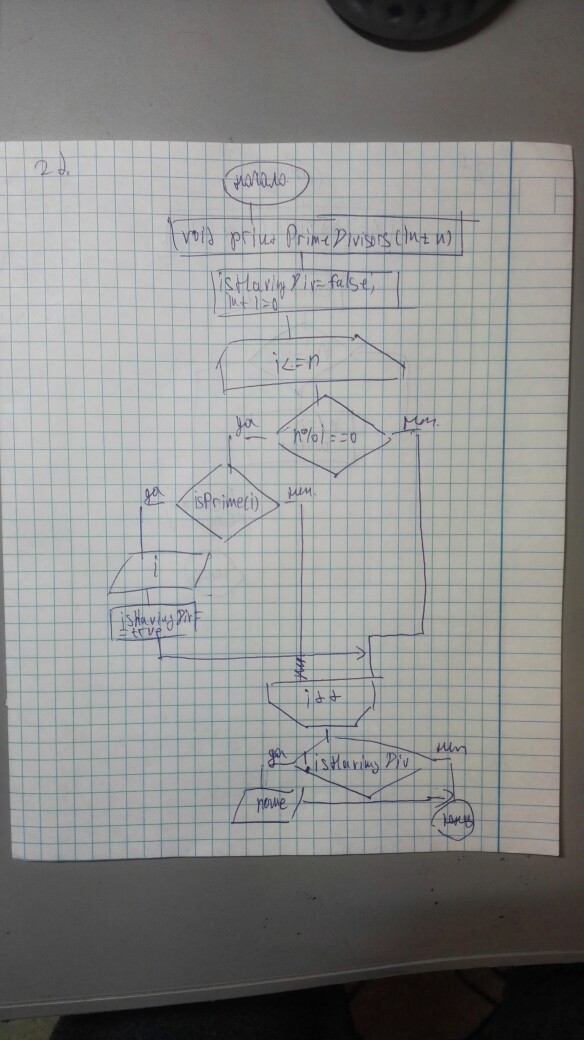 2d.
начало
void print PrimeDivisors(int n)
isHavingDiv=false;
int i=0
i<=n
n%i==0
да
нет
isPrime(i)
да
нет
i
isHavingDiv=
=true
i++
!isHavingDiv
да
нет
none
конец